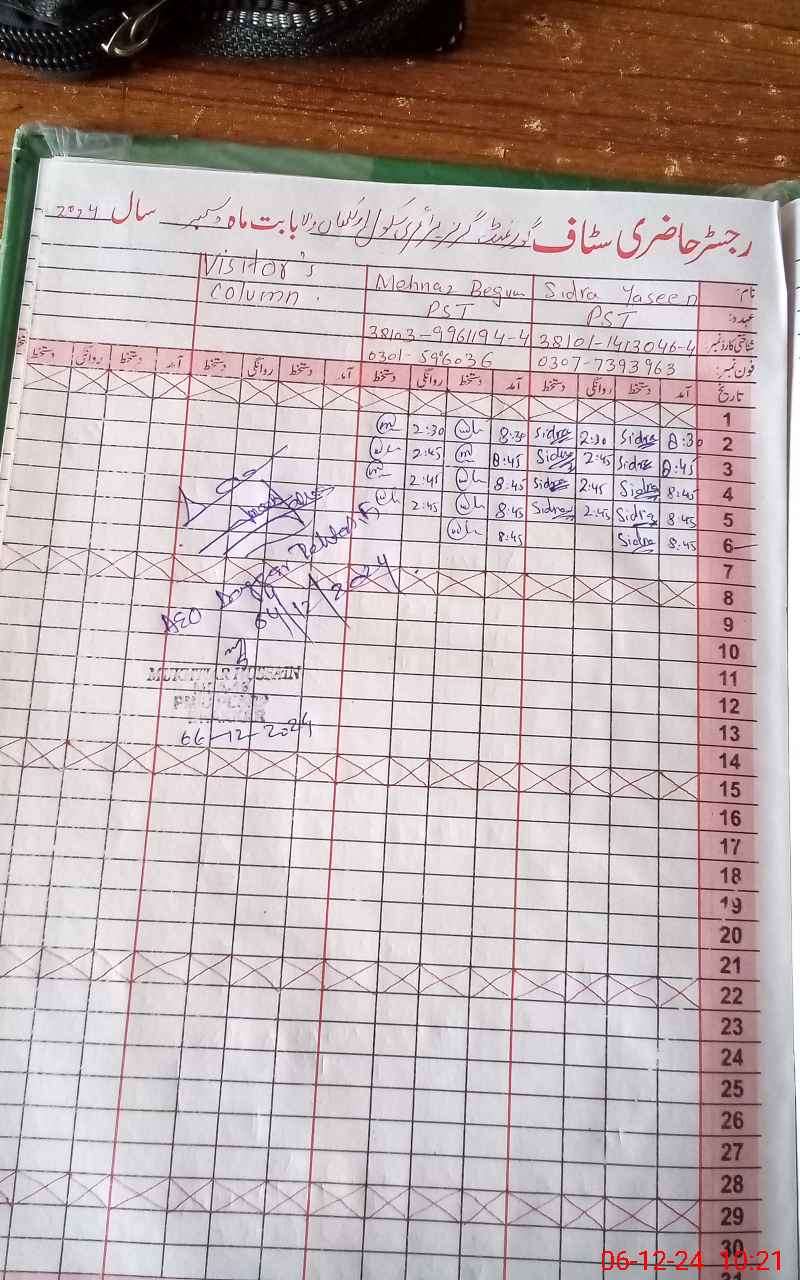 رجسٹر حاضری سٹاف گورنمنٹ گرلز پرائمری سکول بابت ماہ دسمبر سال 2024
نام: Sidra Yaseen Mehnaz Begum Visitor's
عہدہ: PST PST Column.
شناختی کارڈ نمبر 38101-1413046-4 38103-9961194-4
فون نمبر: 0307-7393963 0301-596036
تاریخ آمد دستخط روانگی دستخط آمد دستخط روانگی دستخط آمد دستخط روانگی دستخط آمد دستخط روانگی دستخط
1
2 8:30 Sidra 2:30 Sidra 8:30 2:30
3 8:45 Sidra 2:45 Sidra 8:45 2:45
4 8:45 Sidra 2:45 Sidra 8:45 2:45
5 8:45 Sidra 2:45 Sidra 8:45 2:45
6 8:45 Sidra 8:45
7
8
AEO
04/12/2024
9
10
11
MUKHTIAR HUSSAIN
12
13
06-12-2024
14
15
16
17
18
19
20
21
22
23
24
25
26
27
28
29
30
06-12-24 10:21